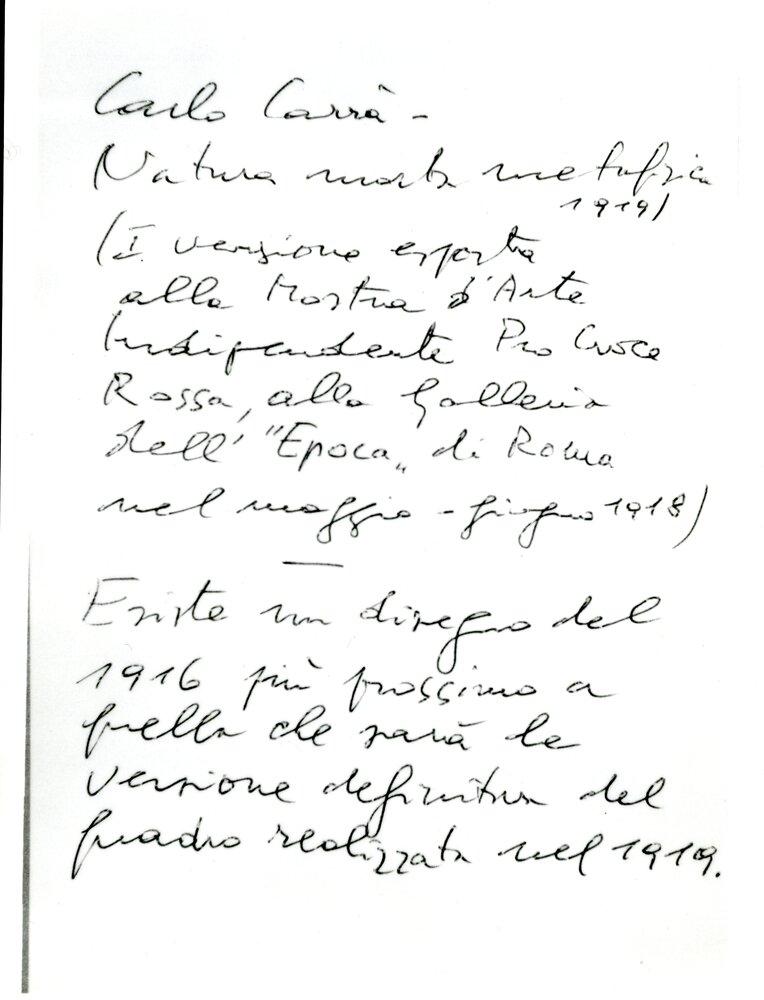 Carlo Carrà -
Natura morta metafisica
1919)
(I versione esposta
alla Mostra d'Arte
Indipendente Pro Croce
Rossa, alla Galleria
dell' "Epoca„ di Roma
nel maggio - giugno 1918)
Esiste un disegno del
1916 più prossimo a
quella che sarà la
versione definitiva del
quadro realizzata nel 1919.